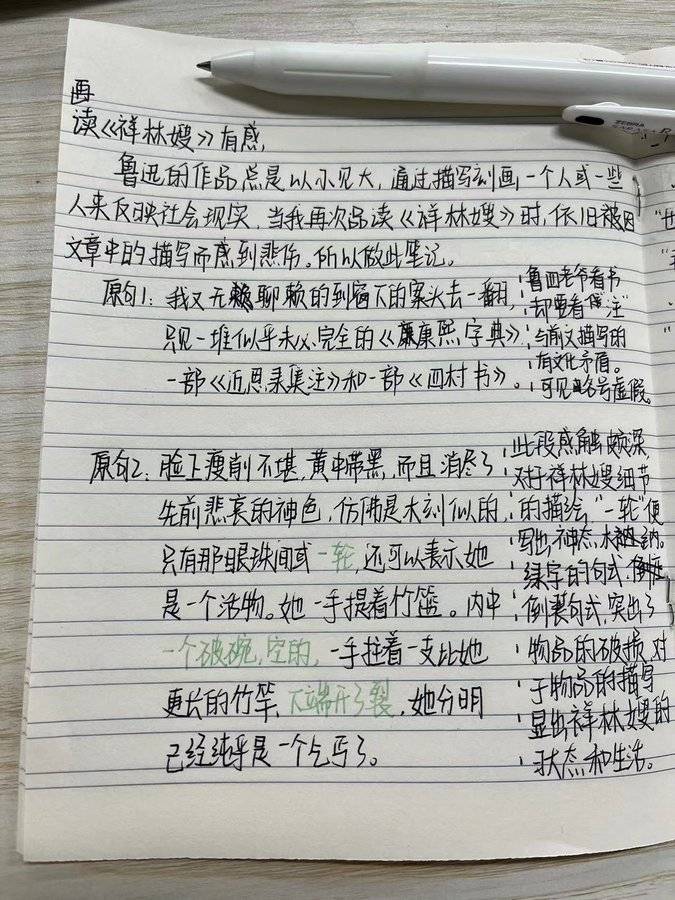 再
读《祥林嫂》有感,
鲁迅的作品总是以小见大,通过描写刻画一个人或一些
人来反映社会现实,当我再次品读《祥林嫂》时,依旧被因
文章中的描写而感到悲伤。所以做此笔记。
原句1:我又无赖聊赖的到窗下的案头去一翻,
只见一堆似乎未必完全的《康熙字典》
一部《近思录集注》和一部《四书》。
鲁四老爷看书
却要看"注"
与前文描写的
有文化矛盾。
可见虚假。
原句2:脸上瘦削不堪,黄中带黑,而且消尽了
先前悲哀的神色,仿佛是木刻似的,
只有那眼珠间或一轮,还可以表示她
是一个活物。她一手提着竹篮。内中
一个破碗,空的,一手拄着一支比她
更长的竹竿,下端开了裂,她分明
已经纯乎是一个乞丐了。
此段感触颇深,
对于祥林嫂细节
的描绘,"一轮"便
写出神态,木讷。
绿字的句式,
倒装句式,突出了
物品的破损,对
于物品的描写
显出祥林嫂的
状态和生活。
ZEBRA